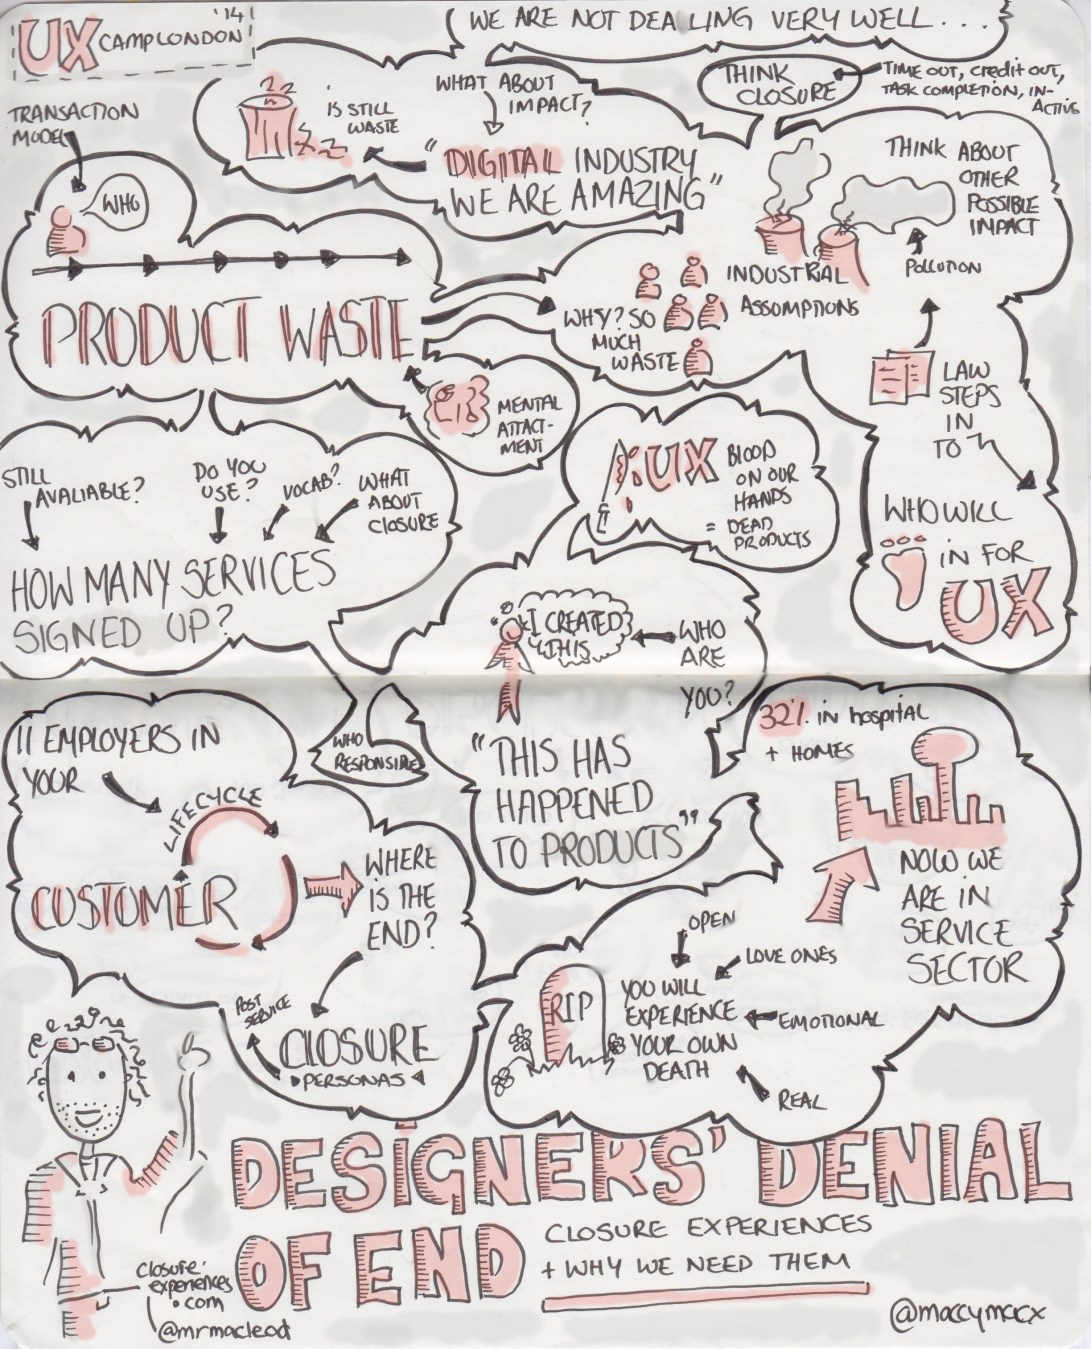 UX
CAMPLONDON
'14
WE ARE NOT DEALING VERY WELL...
THINK
CLOSURE
TIME OUT, credit out,
TASK COMPLETION, IN-
ACTIVE
TRANSACTION
MODEL
WHO
IS STILL
WASTE
WHAT ABOUT
IMPACT?
"DIGITAL INDUSTRY
WE ARE AMAZING"
THINK ABOUT
OTHER
POSSIBLE
IMPACT
POLLUTION
INDUSTRIAL
ASSUMPTIONS
WHY? SO
MUCH
WASTE
PRODUCT WASTE
MENTAL
ATTACT-
MENT
LAW
STEPS
IN
TO
WHO WILL
IN FOR
UX
UX
BLOOD
ON OUR
HANDS
= DEAD
PRODUCTS
STILL
AVALIABLE?
DO YOU
USE?
VOCAB?
WHAT
ABOUT
CLOSURE
HOW MANY SERVICES
SIGNED UP?
I CREATED
THIS
WHO
ARE
YOU?
"THIS HAS
HAPPENED
TO PRODUCTS"
WHO
RESPONSIBLE
11 EMPLOYERS IN
YOUR
LIFECYCLE
CUSTOMER
WHERE
IS THE
END?
POST
SERVICE
CLOSURE
PERSONAS
32% in hospital
+ HOMES
NOW WE
ARE IN
SERVICE
SECTOR
OPEN
LOVE ONES
RIP
YOU WILL
EXPERIENCE
YOUR OWN
DEATH
EMOTIONAL
REAL
DESIGNERS' DENIAL
OF END
CLOSURE EXPERIENCES
+ WHY WE NEED THEM
closure.
experiences
.com
@mrmacleod
@maccymacx